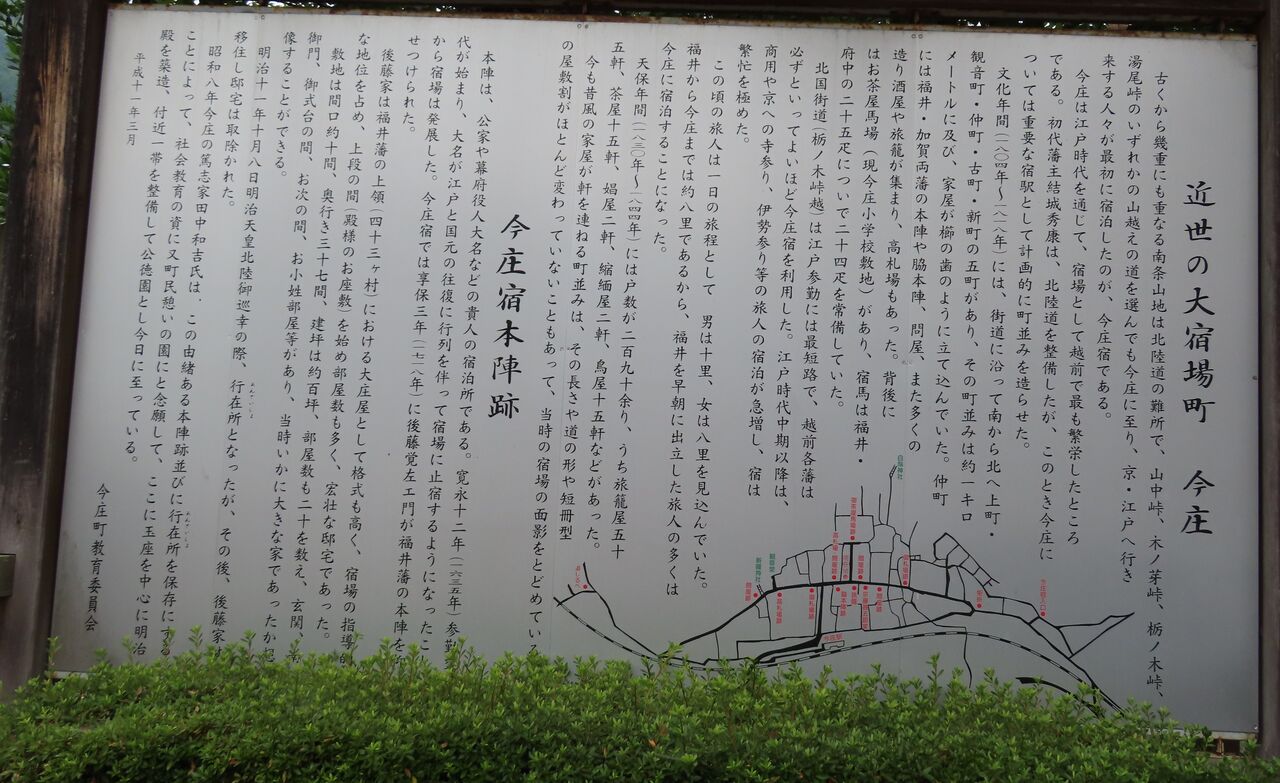 近世の大宿場町 今庄
古くから幾重にも重なる南条山地は北陸道の難所で、山中峠、木ノ芽峠、栃ノ木峠、
湯尾峠のいずれかの山越えの道を選んでも今庄に至り、京・江戸へ行き
来する人々が最初に宿泊したのが、今庄宿である。
今庄は江戸時代を通じて、宿場として越前で最も繁栄したところ
である。初代藩主結城秀康は、北陸道を整備したが、このとき今庄に
ついては重要な宿駅として計画的に町並みを造らせた。
文化年間(一八〇四年〜一八一八年)には、街道に沿って南から北へ上町・
観音町・仲町・古町・新町の五町があり、その町並みは約一キロ
メートルに及び、家屋が櫛の歯のように立て込んでいた。仲町
には福井・加賀両藩の本陣や脇本陣、問屋、また多くの
造り酒屋や旅籠が集まり、高札場もあった。背後に
はお茶屋馬場(現今庄小学校敷地)があり、宿馬は福井・
府中の二十五疋についで二十四疋を常備していた。
北国街道(栃ノ木峠越)は江戸参勤には最短路で、越前各藩は
必ずといってよいほど今庄宿を利用した。江戸時代中期以降は、
商用や京への寺参り、伊勢参り等の旅人の宿泊が急増し、宿は
繁忙を極めた。
この頃の旅人は一日の旅程として 男は十里、女は八里を見込んでいた。
福井から今庄までは約八里であるから、福井を早朝に出立した旅人の多くは
今庄に宿泊することになった。
天保年間(一八三〇年〜一八四四年)には戸数が二百九十余り、うち旅籠屋五十
五軒、茶屋十五軒、娼屋二軒、縮緬屋二軒、鳥屋十五軒などがあった。
今も昔風の家屋が軒を連ねる町並みは、その長さや道の形や短冊型
の屋敷割がほとんど変わっていないこともあって、当時の宿場の面影をとどめている
今庄宿本陣跡
本陣は、公家や幕府役人大名などの貴人の宿泊所である。寛永十二年(一六三五年)参勤
代が始まり、大名が江戸と国元の往復に行列を伴って宿場に止宿するようになったこ
から宿場は発展した。今庄宿では享保三年(一七一八年)に後藤覚左エ門が福井藩の本陣を
せつけられた。
後藤家は福井藩の上領(四十三ヶ村)における大庄屋として格式も高く、宿場の指導的
な地位を占め、上段の間(殿様のお座敷)を始め部屋数も多く、宏壮な邸宅であった。
敷地は間口約十間、奥行き三十七間、建坪は約百坪、部屋数も二十を数え、玄関、
御門、御式台の間、お次の間、お小姓部屋等があり、当時いかに大きな家であったか想
像することができる。
明治十一年十月八日明治天皇北陸御巡幸の際、行在所となったが、その後、後藤家は
移住し邸宅は取除かれた。
昭和八年今庄の篤志家田中和吉氏は、この由緒ある本陣跡並びに行在所を保存にする
ことによって、社会教育の資に又町民憩いの園にと念願して、ここに玉座を中心に明治
殿を築造、付近一帯を整備して公徳園とし今日に至っている。
平成十一年三月
今庄町教育委員会
白鬚神社
高札場
観音堂
新羅神社
今庄駅
今庄宿入口